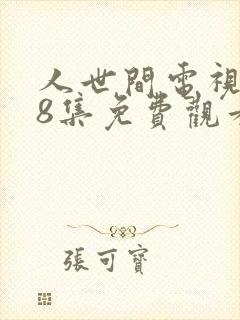 人世間電視
8集免費觀
張可寶